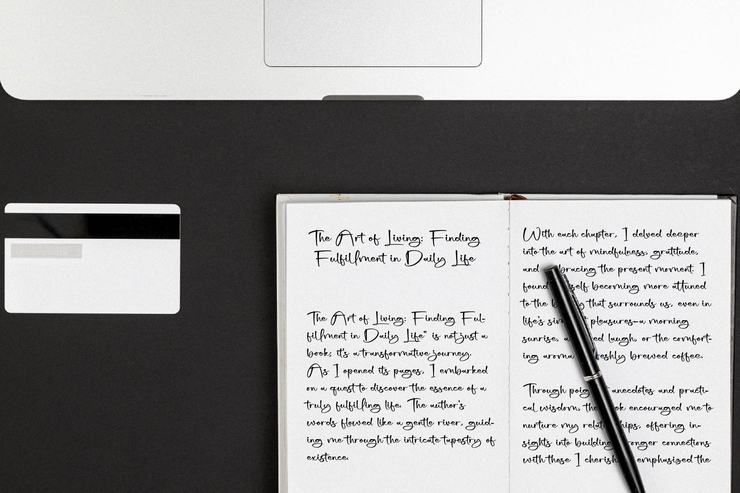 The Art of Living: Finding
Fulfillment in Daily Life
The Art of Living: Finding Ful-
fillment in Daily Life" is not just a
book; it's a transformative journey.
As I opened its pages, I embarked
on a quest to discover the essence of a
truly fulfilling life. The author's
words flowed like a gentle river, guid-
ing me through the intricate tapestry of
existence.
With each chapter, I delved deeper
into the art of mindfulness, gratitude,
and bracing the present moment. I
found self becoming more attuned
to the that surrounds us, even in
life's pleasures-a morning
sunrise, a laugh, or the comfort-
ing aroma freshly brewed coffee.
Through anecdotes and practi-
cal wisdom, the encouraged me to
nurture my offering in-
sights into building stronger connections
with those I cherish. emphasized the